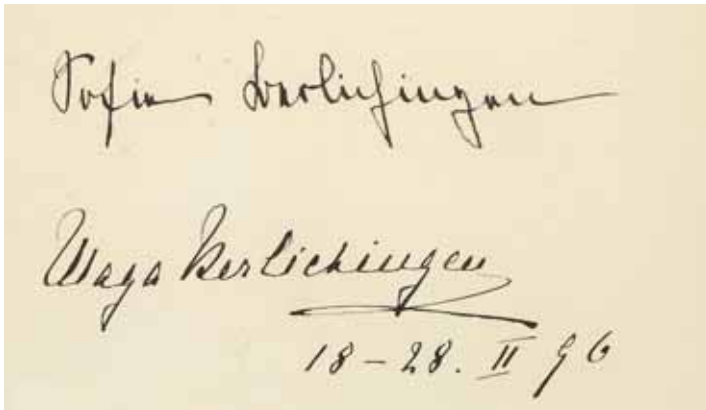 Sofie Berlichingen
Maya Berlichingen
18 – 28. II 96